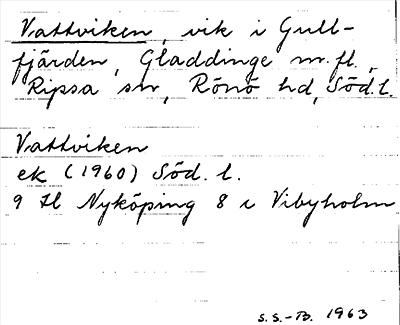 Vattviken, vik i Gull-
fjärden, Gladdinge m.fl.,
Ripsa sn, Rönö hd, Söd.l.
Vattviken
ek (1960) Söd. l.
9 H Nyköping 8 c Vibyholm
S.S.-B. 1963